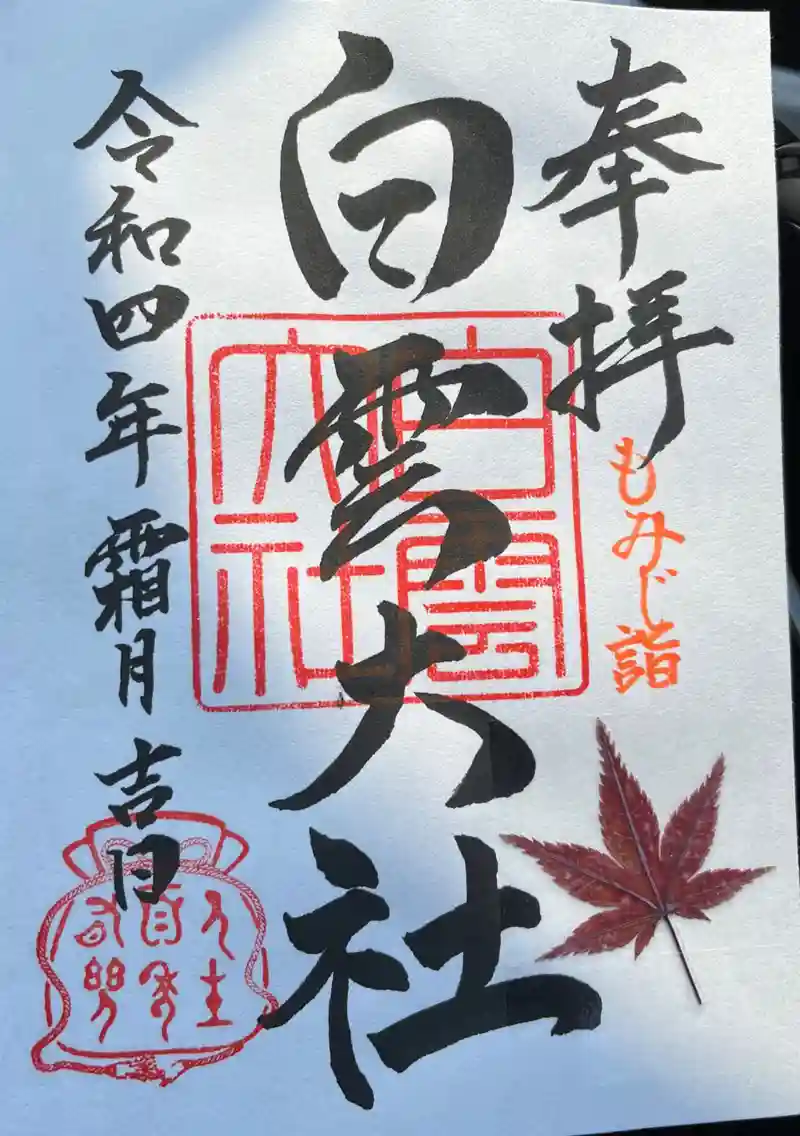 奉拝
もみじ詣
白雲大社
白雲
大社
令和四年霜月吉日